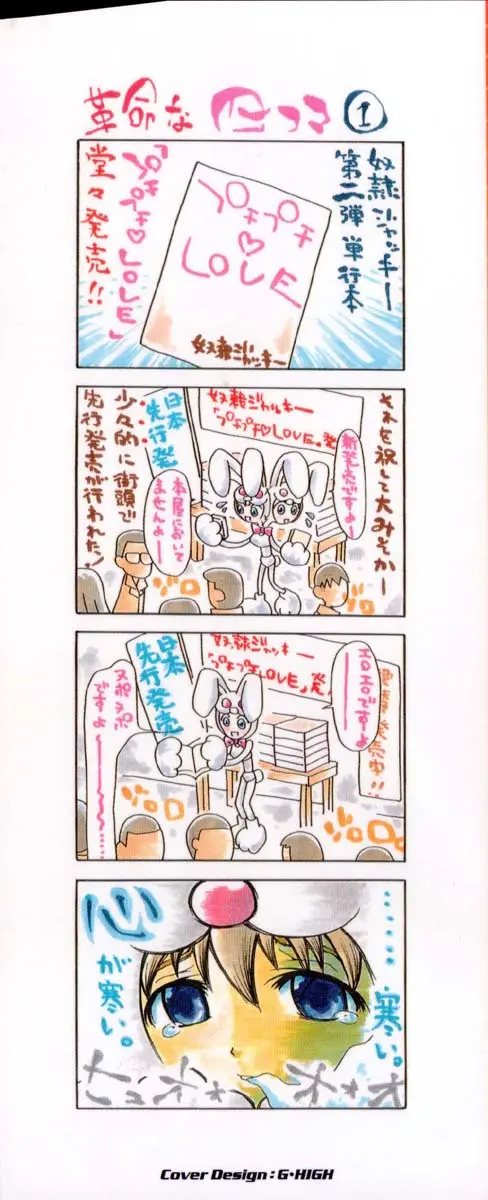 革命な
①
奴隷ジャッキー
第二弾単行本
プチプチ
♡
LOVE
奴隷ジャッキー
「プチプチ♡LOVE」
堂々発売!!
それを祝して大みそかー
奴隷ジャッキー
「プチプチ♡LOVE」発
新発売ですよー
日本
先行発
本屋において
ませんよー
ゾロ
ゾロ
少々的に街頭で
先行発売が行われた。
奴隷ジャッキー
「プチプチ♡LOVE」発
エロエロですよー
発売中!!
日本
先行発売
ヌポヌポ
ですよ〜〜……
ゾロ
ゾロ
……寒い。
心
が寒い。
Cover Design : G・HIGH